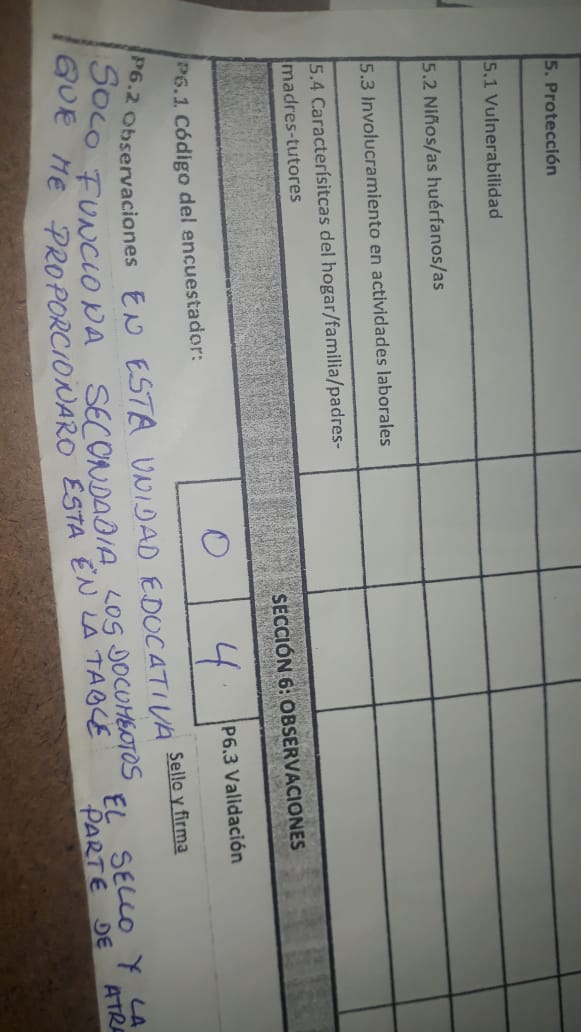 5. Protección
5.1 Vulnerabilidad
5.2 Niños/as huérfanos/as
5.3 Involucramiento en actividades laborales
5.4 Caracterísitcas del hogar/familia/padres-
madres-tutores
SECCIÓN 6: OBSERVACIONES
P6.1. Código del encuestador:
0 4
P6.3 Validación
Sello y firma
P6.2 Observaciones EN ESTA UNIDAD EDUCATIVA
SOLO FUNCIONA SECONDADIA LOS DOCUMENTOS EL SELLO Y LA
QUE ME PROPORCIONARO ESTA EN LA TABLE PARTE DE